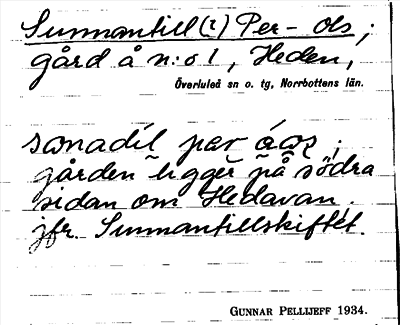 Sunnantill (?) Per-Ols,
gård å n:o 1, Heden,
Överluleå sn o. tg, Norrbottens län.
par
gården ligger på södra
sidan om Hedavan.
jfr. Sunnantillskiftet.
GUNNAR PELLIJEFF 1934.